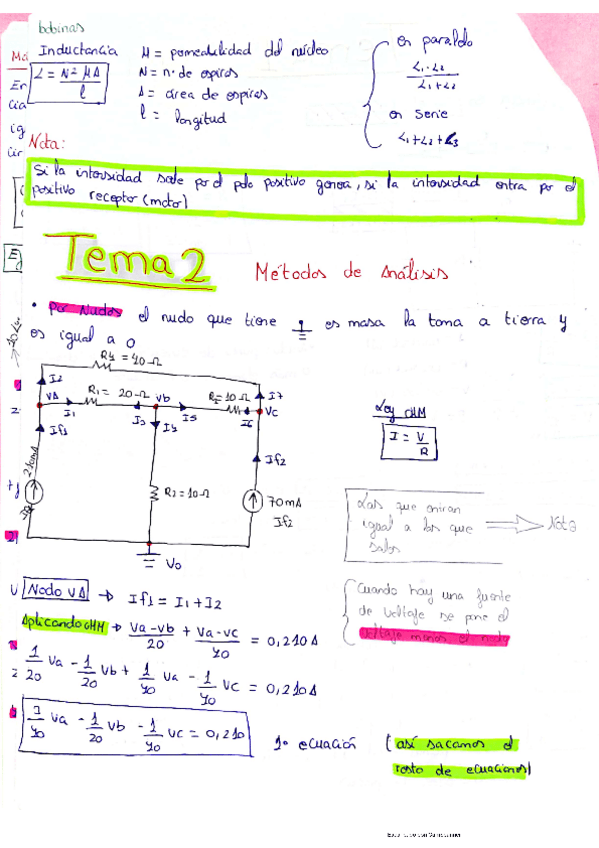 bobinas
Inductancia
L = N² · μA / l
μ = pomeabilidad del núcleo
N = nº de espiras
A = área de espiras
l = longitud
en paralelo
L1 · L2 / L1 + L2
en serie
L1 + L2 + L3
Nota:
Si la intensidad sale por el polo positivo genera, si la intensidad entra por el
positivo receptor (motor)
Tema 2 Métodos de análisis
• por Nudos el nudo que tiene ⏚ es masa la toma a tierra y
es igual a 0
R4 = 40 Ω
I2
VA
R1 = 20 Ω
Vb
R2 = 10 Ω
I7
VC
I1
I3
I4
I5
I6
If1
210mA
R3 = 10 Ω
If2
70mA
If2
V0
Ley OHM
I = V/R
Las que entran
igual a las que
salen
Nota
Cuando hay una fuente
de voltaje se pone el
voltaje menos el nudo
Nodo VA → If1 = I1 + I2
Aplicando OHM → Va-Vb/20 + Va-Vc/40 = 0,210A
1/20 Va - 1/20 Vb + 1/40 Va - 1/40 Vc = 0,210A
3/40 Va - 1/20 Vb - 1/40 Vc = 0,210
1º ecuación (así sacamos el
resto de ecuaciones)